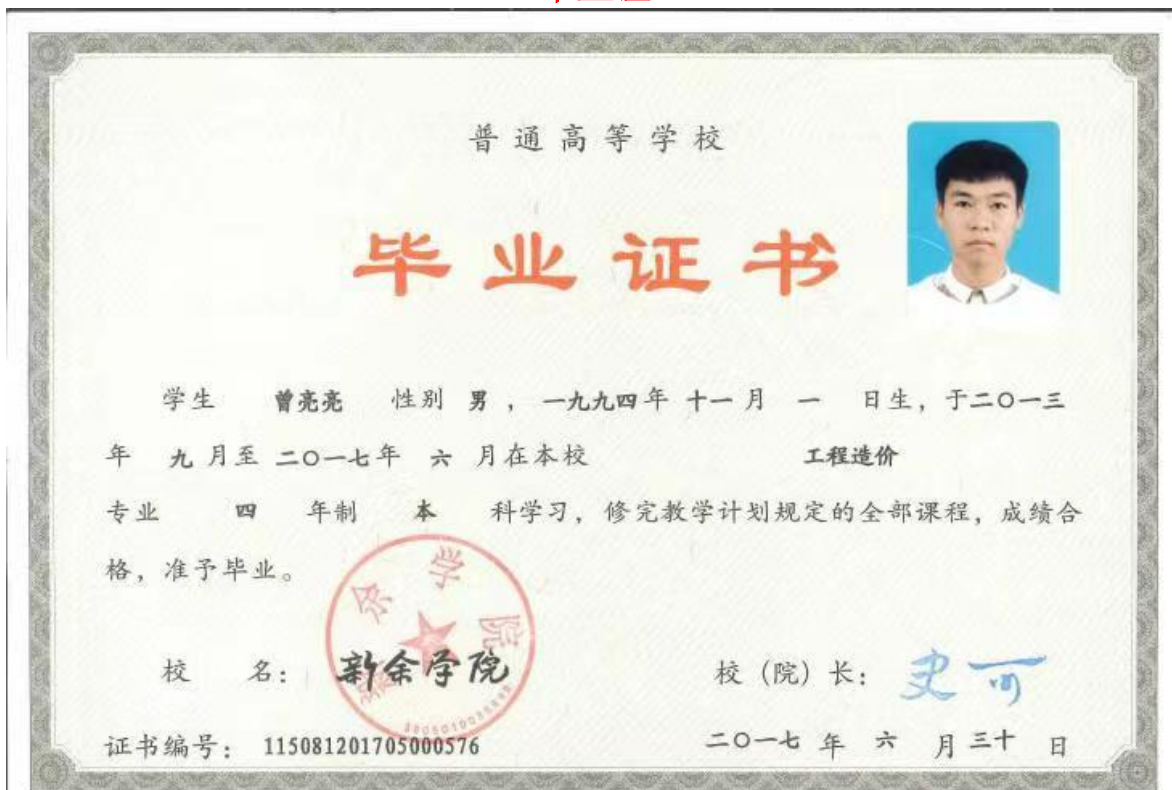 普通高等学校
毕业证书
学生 曾亮亮 性别 男，一九九四年 十一月 一 日生，于二〇一三
年 九 月至 二〇一七年 六 月在本校 工程造价
专业 四 年制 本 科学习，修完教学计划规定的全部课程，成绩合
格，准予毕业。
新余学院
校 名： 新余学院
校（院）长：
证书编号： 115081201705000576
二〇一七 年 六 月 三十 日